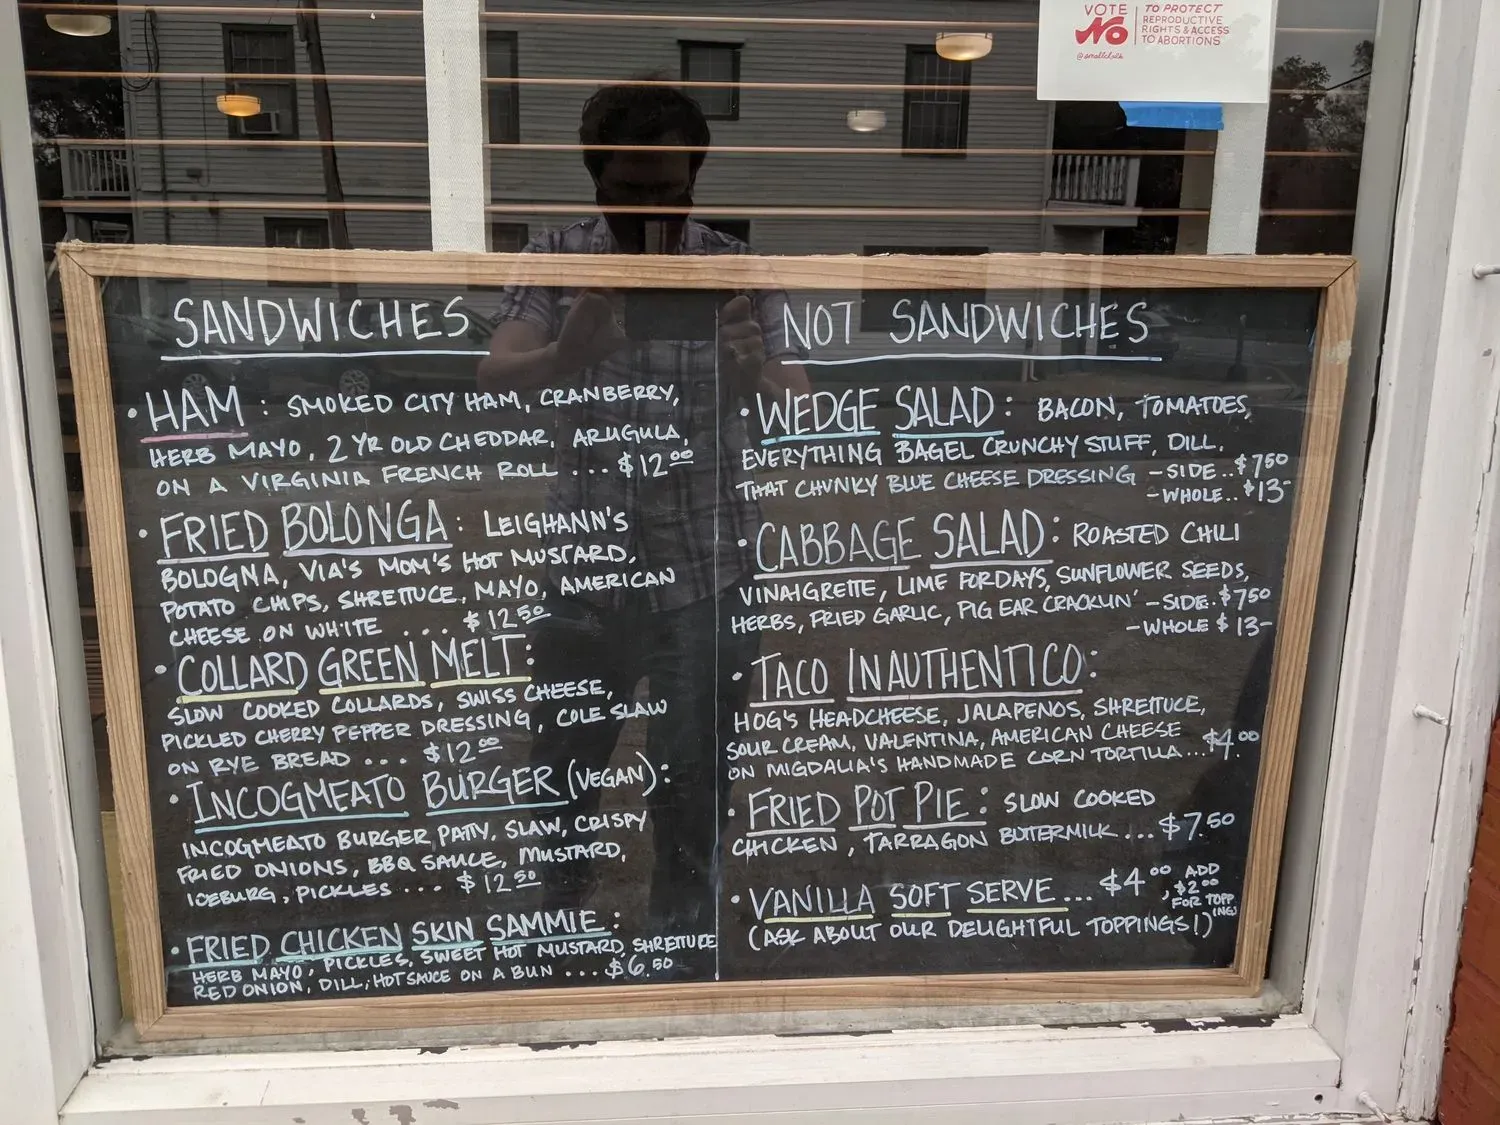 VOTE
NO
TO PROTECT
REPRODUCTIVE
RIGHTS & ACCESS
TO ABORTIONS
SANDWICHES
• HAM : SMOKED CITY HAM, CRANBERRY,
HERB MAYO, 2 YR OLD CHEDDAR, ARUGULA,
ON A VIRGINIA FRENCH ROLL ... $12.00
• FRIED BOLONGA : LEIGHANN'S
BOLOGNA, VIA'S MOM'S HOT MUSTARD,
POTATO CHIPS, SHRETTUCE, MAYO, AMERICAN
CHEESE ON WHITE .... $12.50
• COLLARD GREEN MELT:
SLOW COOKED COLLARDS, SWISS CHEESE,
PICKLED CHERRY PEPPER DRESSING, COLE SLAW
ON RYE BREAD ... $12.00
• INCOGMEATO BURGER (VEGAN):
INCOGMEATO BURGER PATTY, SLAW, CRISPY
FRIED ONIONS, BBQ SAUCE, MUSTARD,
ICEBURG, PICKLES ... $12.50
• FRIED CHICKEN SKIN SAMMIE :
HERB MAYO, PICKLES, SWEET HOT MUSTARD, SHRETTUCE
RED ONION, DILL, HOT SAUCE ON A BUN ... $6.50
NOT SANDWICHES
• WEDGE SALAD : BACON, TOMATOES,
EVERYTHING BAGEL CRUNCHY STUFF, DILL,
THAT CHUNKY BLUE CHEESE DRESSING - SIDE..$7.50
- WHOLE..$13-
• CABBAGE SALAD : ROASTED CHILI
VINAIGRETTE, LIME FOR DAYS, SUNFLOWER SEEDS,
HERBS, FRIED GARLIC, PIG EAR CRACKLIN' - SIDE.$7.50
- WHOLE $13-
• TACO INAUTHENTICO :
HOG'S HEADCHEESE, JALAPENOS, SHRETTUCE,
SOUR CREAM, VALENTINA, AMERICAN CHEESE
ON MIGDALIA'S HANDMADE CORN TORTILLA...$4.00
• FRIED POT PIE : SLOW COOKED
CHICKEN, TARRAGON BUTTERMILK ... $7.50
• VANILLA SOFT SERVE ... $4.00, ADD $2.00 FOR TOPPINGS
(ASK ABOUT OUR DELIGHTFUL TOPPINGS!)